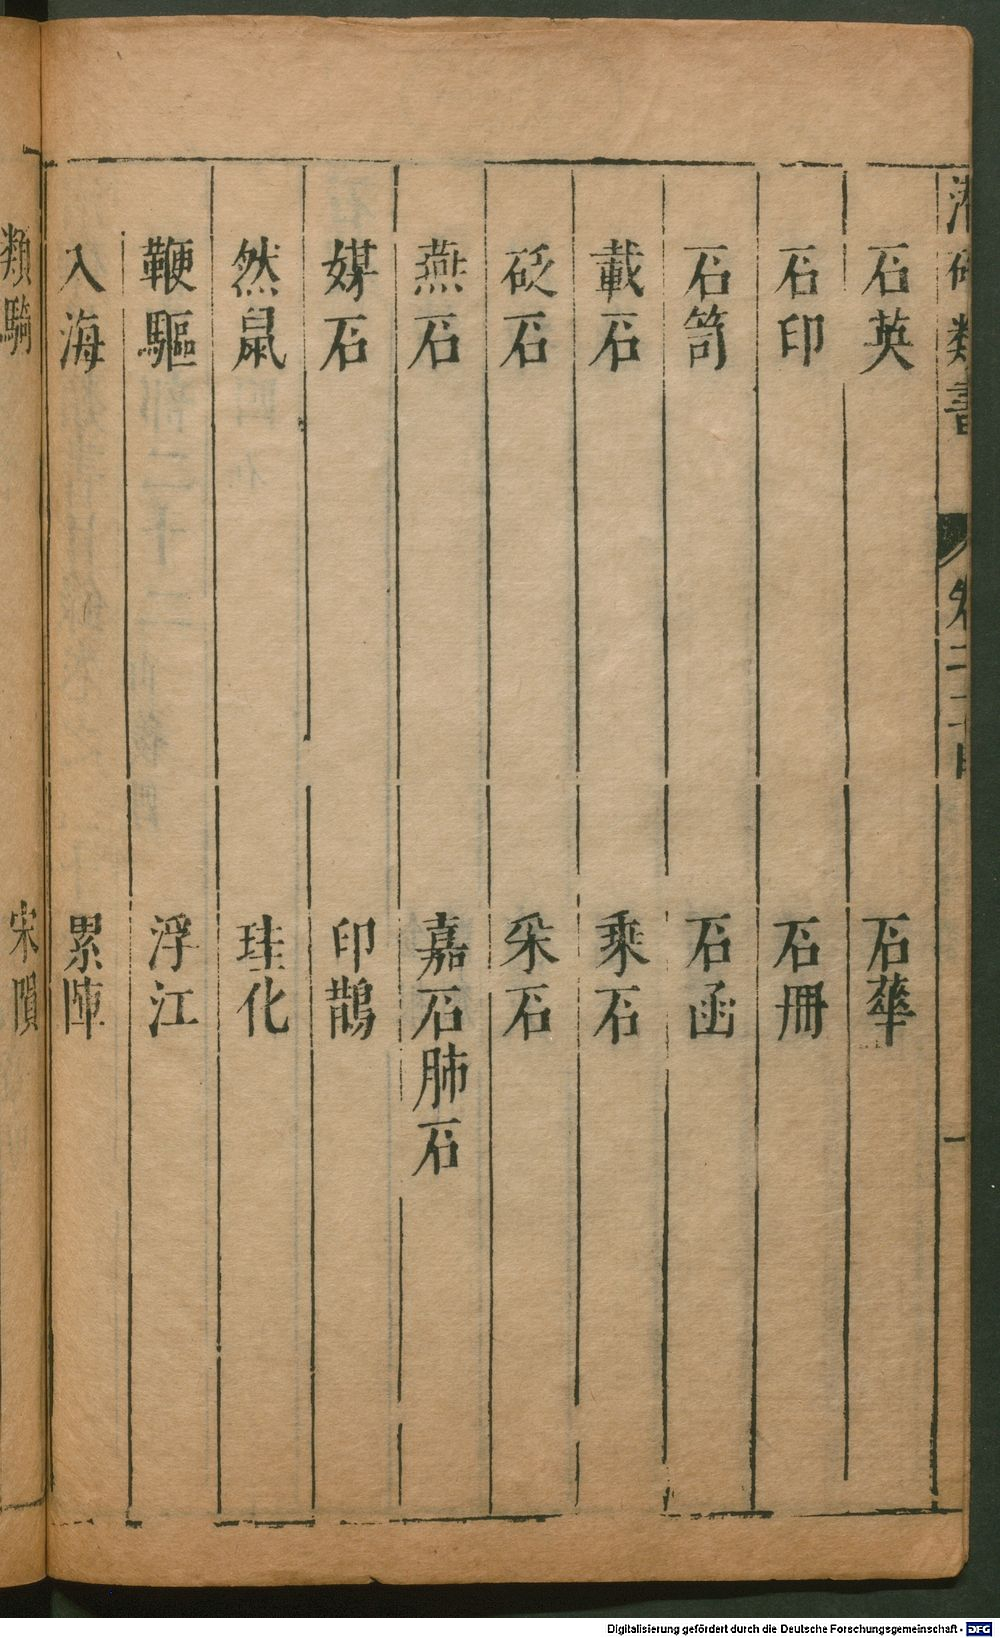 潛確類書 卷二十四 一
石英 石華
石印 石冊
石笥 石函
載石 乘石
砭石 采石
燕石 嘉石肺石
媒石 印鵲
然鼠 珪化
鞭驅 浮江
入海 累陣
類騎 宋隕
Digitalisierung gefördert durch die Deutsche Forschungsgemeinschaft - DFG